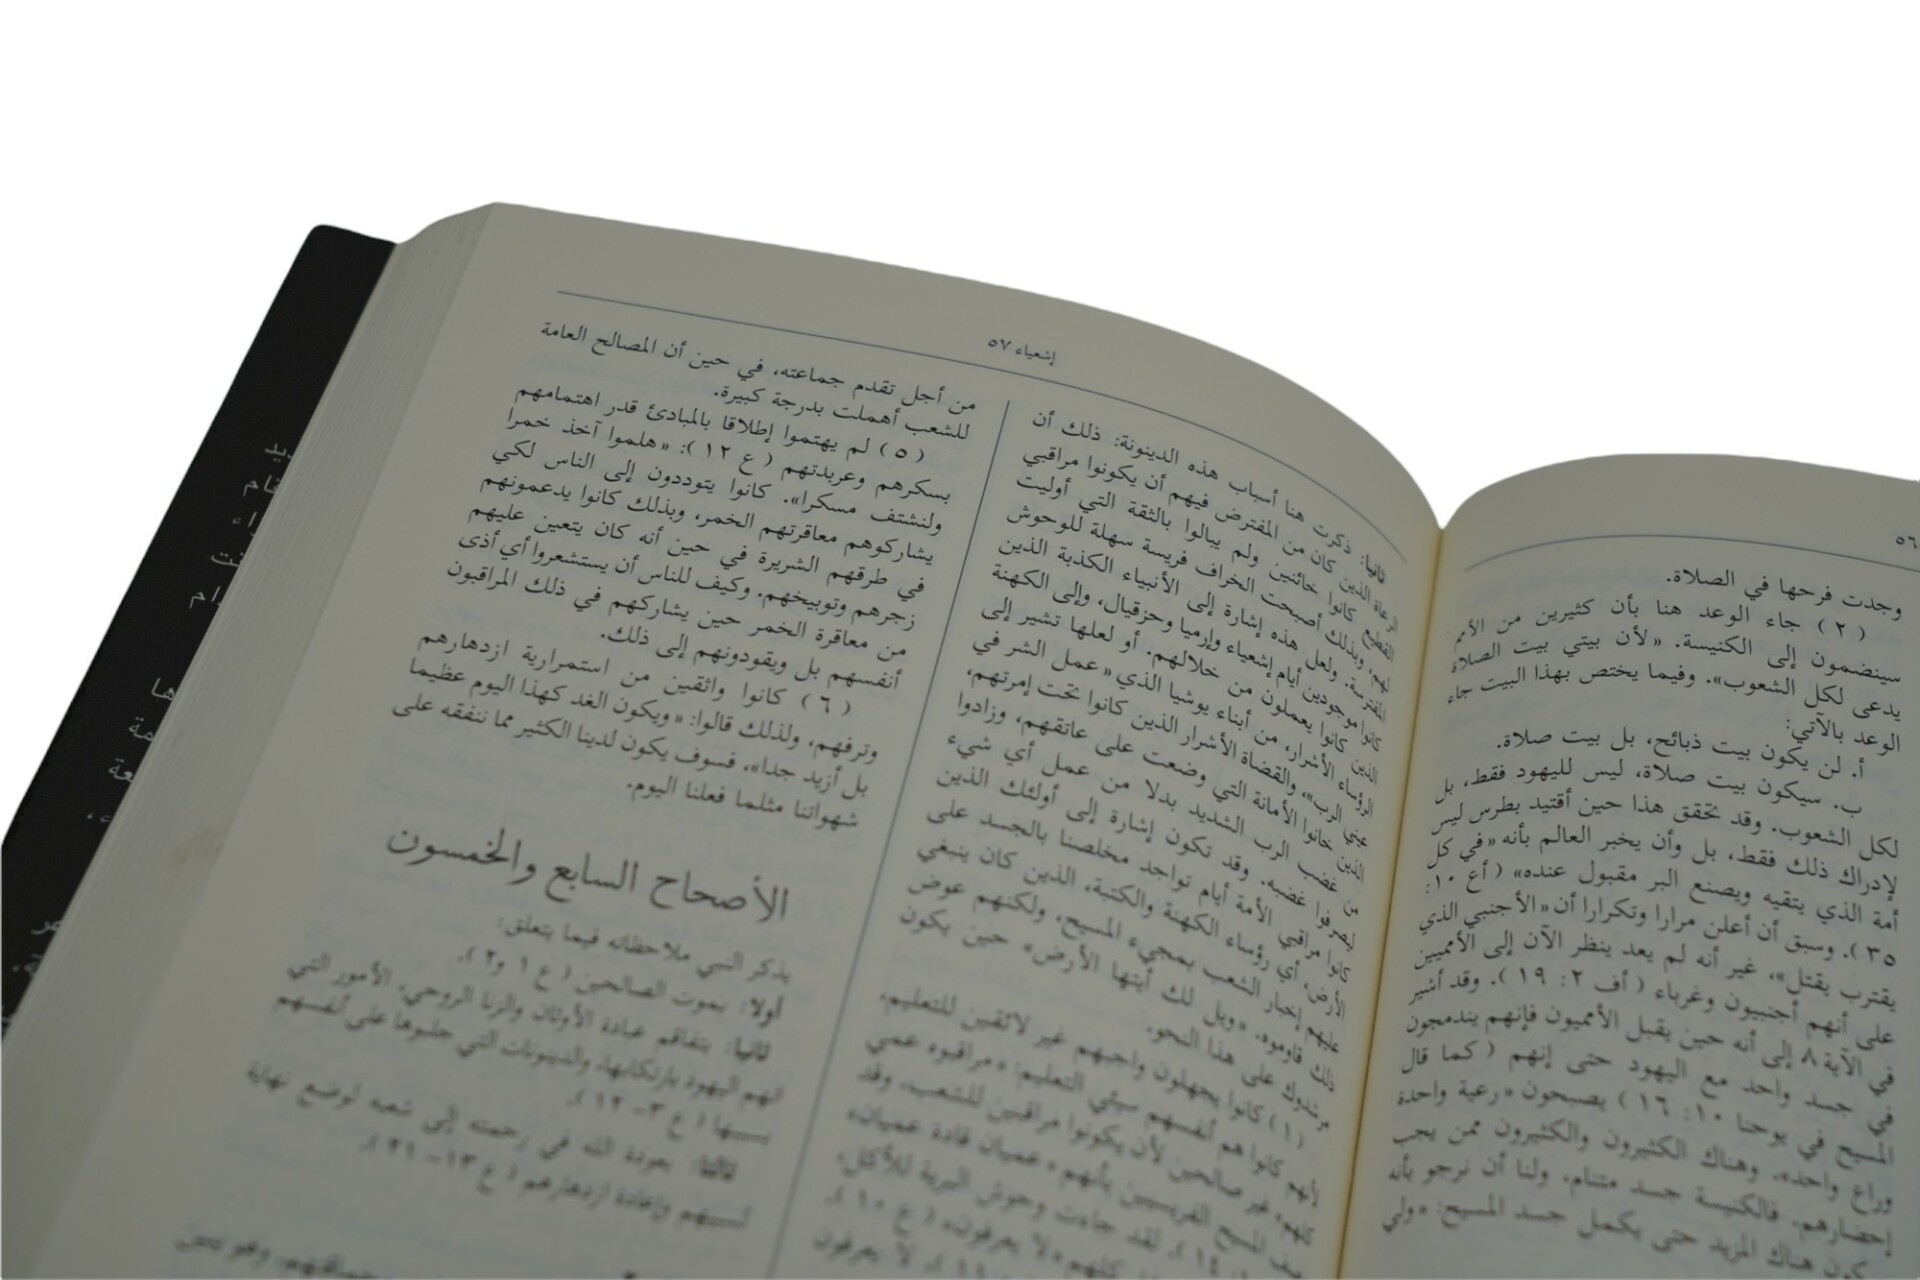 ٥٦
وجدت فرحها في الصلاة.
( ٢ ) جاء الوعد هنا بأن كثيرين من الأمم
سينضمون إلى الكنيسة. «لأن بيتي بيت الصلاة
يدعى لكل الشعوب». وفيما يختص بهذا البيت جاء
الوعد بالآتي:
أ. لن يكون بيت ذبائح، بل بيت صلاة.
ب. سيكون بيت صلاة، ليس لليهود فقط، بل
لكل الشعوب. وقد تحقق هذا حين أقتيد بطرس ليس
لإدراك ذلك فقط، بل وأن يخبر العالم بأنه «في كل
أمة الذي يتقيه ويصنع البر مقبول عنده» ( أع ١٠:
٣٥ ). وسبق أن أعلن مرارا وتكرارا أن «الأجنبي الذي
يقترب يقتل»، غير أنه لم يعد ينظر الآن إلى الأمميين
على أنهم أجنبيون وغرباء ( أف ٢: ١٩ ). وقد أشير
في الآية ٨ إلى أنه حين يقبل الأمميون فإنهم يندمجون
في جسد واحد مع اليهود حتى إنهم ( كما قال
المسيح في يوحنا ١٠: ١٦ ) يصبحون «رعية واحدة
وراع واحد». وهناك الكثيرون والكثيرون ممن يجب
إحضارهم. فالكنيسة جسد متنام، ولنا أن نرجو بأنه
يكون هناك المزيد حتى يكمل جسد المسيح: «ولي
إشعياء ٥٧
ثانيا: ذكرت هنا أسباب هذه الدينونة: ذلك أن
الرعاة الذين كان من المفترض فيهم أن يكونوا مراقبي
القطيع كانوا خائنين ولم يبالوا بالثقة التي أوليت
لهم، وبذلك أصبحت الخراف فريسة سهلة للوحوش
المفترسة. ولعل هذه إشارة إلى الأنبياء الكذبة الذين
كانوا موجودين أيام إشعياء وإرميا وحزقيال، وإلى الكهنة
الذين كانوا يعملون من خلالهم. أو لعلها تشير إلى
الرؤساء الأشرار، من أبناء يوشيا الذي «عمل الشر في
عيني الرب»، والقضاة الأشرار الذين كانوا تحت إمرتهم،
الذين خانوا الأمانة التي وضعت على عاتقهم، وزادوا
من غضب الرب الشديد بدلا من عمل أي شيء
ليصرفوا غضبه. وقد تكون إشارة إلى أولئك الذين
كانوا مراقبي الأمة أيام تواجد مخلصنا بالجسد على
الأرض، أي رؤساء الكهنة والكتبة، الذين كان ينبغي
عليهم إخبار الشعب بمجيء المسيح، ولكنهم عوض
ذلك قاوموه. «ويل لك أيتها الأرض» حين يكون
مرشدوك على هذا النحو.
( ١ ) كانوا يجهلون واجبهم غير لائقين للتعليم،
لأنهم كانوا هم أنفسهم سيئي التعليم: «مراقبوه عمي
كلهم» غير صالحين لأن يكونوا مراقبين للشعب. وقد
المسيح الفريسيين بأنهم «عميان قادة عميان»
١٤ ). لقد جاءت وحوش البرية للأكل،
كلهم «لا يعرفون» ( ع ١٠ ).
لا يعرفون
من أجل تقدم جماعته، في حين أن المصالح العامة
للشعب أهملت بدرجة كبيرة.
( ٥ ) لم يهتموا إطلاقا بالمبادئ قدر اهتمامهم
بسكرهم وعربدتهم ( ع ١٢ ): «هلموا آخذ خمرا
ولنشتف مسكرا». كانوا يتوددون إلى الناس لكي
يشاركوهم معاقرتهم الخمر، وبذلك كانوا يدعمونهم
في طرقهم الشريرة في حين أنه كان يتعين عليهم
زجرهم وتوبيخهم. وكيف للناس أن يستشعروا أي أذى
من معاقرة الخمر حين يشاركهم في ذلك المراقبون
أنفسهم بل ويقودونهم إلى ذلك.
( ٦ ) كانوا واثقين من استمرارية ازدهارهم
وترفهم، ولذلك قالوا: «ويكون الغد كهذا اليوم عظيما
بل أزيد جدا»، فسوف يكون لدينا الكثير مما ننفقه على
شهواتنا مثلما فعلنا اليوم.
الأصحاح السابع والخمسون
يذكر النبي ملاحظاته فيما يتعلق:
أولا: بموت الصالحين ( ع ١ و٢ ).
ثانيا: بتفاقم عبادة الأوثان والزنا الروحي، الأمور التي
اتهم اليهود بارتكابها، والدينونات التي جلبوها على أنفسهم
بسببها ( ع ٣– ١٢ ).
ثالثا: بعودة الله في رحمته إلى شعبه لوضع نهاية
لسبيهم وإعادة ازدهارهم ( ع ١٣– ٢١ ).